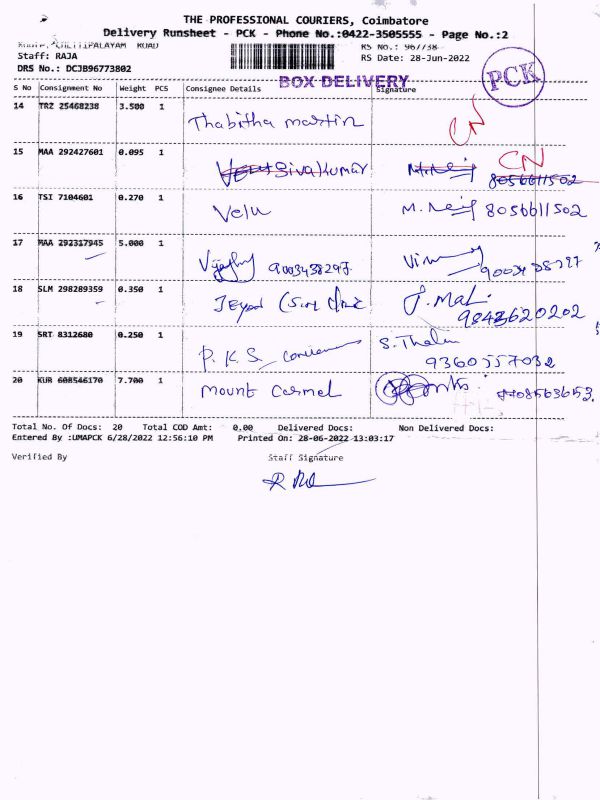 THE PROFESSIONAL COURIERS, Coimbatore
Delivery Runsheet - PCK - Phone No.:0422-3505555 - Page No.:2
CHETTIPALAYAM ROAD
RS No.: 967738
Staff: RAJA
RS Date: 28-Jun-2022
DRS No.: DCJB96773802
PCK
BOX DELIVERY
S No Consignment No Weight PCS Consignee Details Signature
14 TRZ 25468238 3.500 1 Thabitha martin CN
15 MAA 292427601 0.095 1 Sivakumar 8056611502 CN
16 TSI 7104601 0.270 1 Velu 8056611502
17 MAA 292317945 5.000 1 9003438297
18 SLM 298289359 0.350 1 9843620202
19 SRT 8312680 0.250 1 P.K.S. S. 9360557032
20 KUR 608546170 7.700 1 Mount Carmel
Total No. Of Docs: 20 Total COD Amt: 0.00 Delivered Docs: Non Delivered Docs:
Entered By :UMAPCK 6/28/2022 12:56:10 PM Printed On: 28-06-2022 13:03:17
Verified By Staff Signature